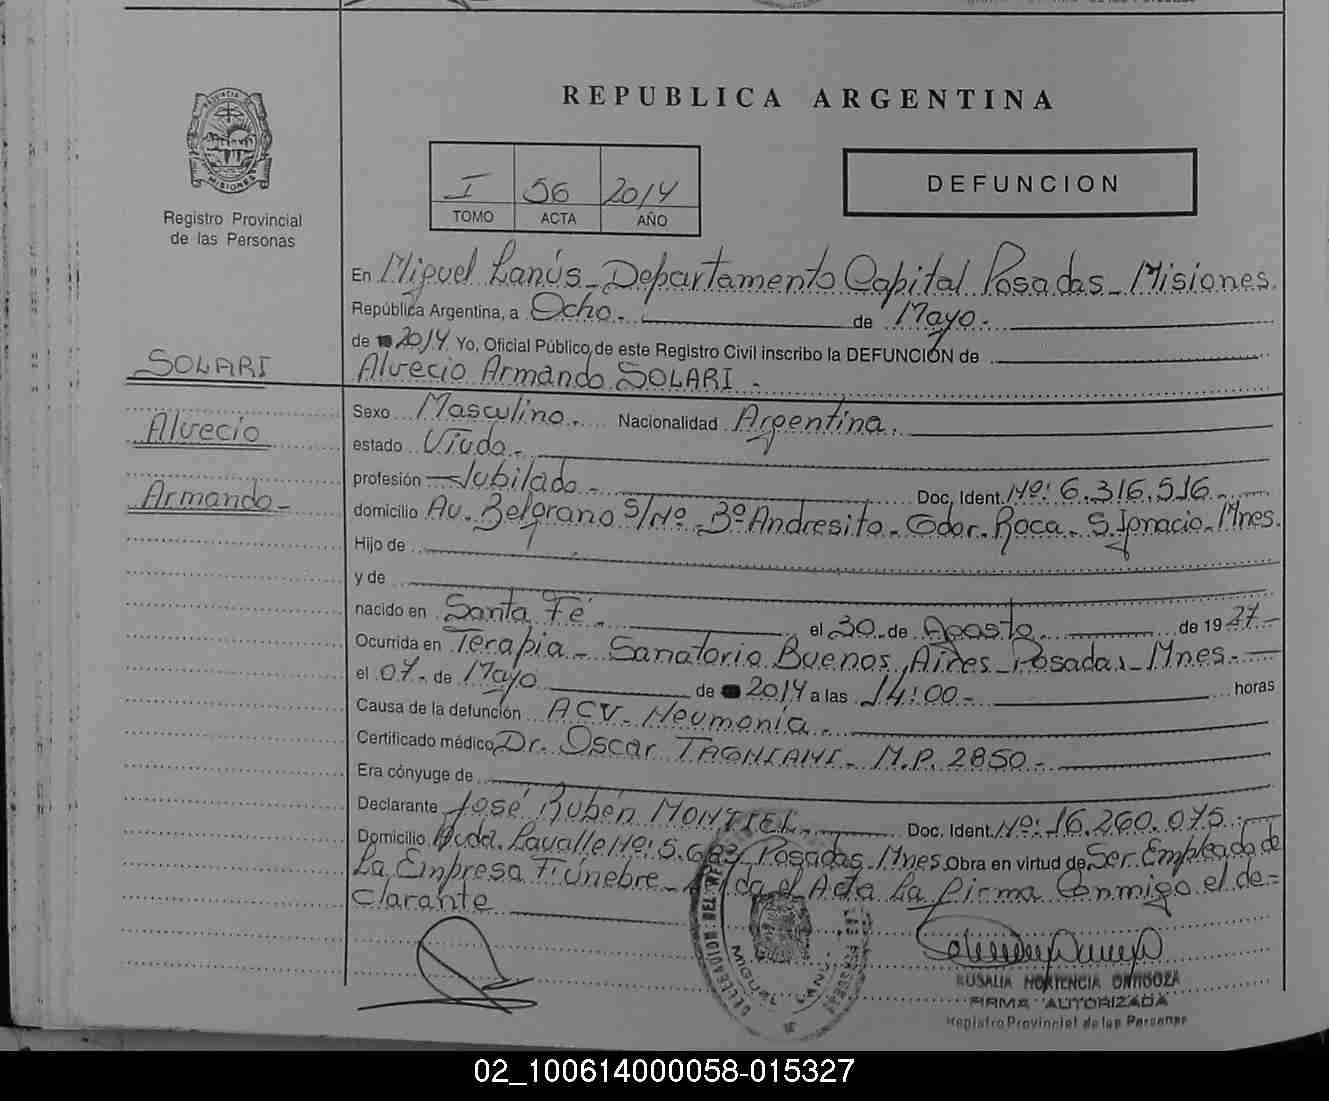 REPUBLICA ARGENTINA
PROVINCIA DE MISIONES
Registro Provincial
de las Personas
I 56 2014
TOMO ACTA AÑO
DEFUNCION
En Miguel Lanús - Departamento Capital Posadas - Misiones.
República Argentina, a Ocho. de Mayo.-
de 2014 Yo, Oficial Público, de este Registro Civil inscribo la DEFUNCIÓN de
SOLARI
Alvecio Armando SOLARI.-
Alvecio
Armando-
Sexo Masculino. Nacionalidad Argentina.
estado Viudo.-
profesión Jubilado.- Doc. Ident. Nº: 6.316.516.-
domicilio Av. Belgrano S/Nº. Bº Andresito - Gdor. Roca - S. Ignacio - Mnes.
Hijo de
y de
nacido en Santa Fé. el 30 de Agosto de 1927-
Ocurrida en Terapia - Sanatorio Buenos Aires - Posadas - Mnes.-
el 07.- de Mayo de 2014 a las 14:00.- horas
Causa de la defunción ACV - Neumonía.
Certificado médico Dr. Oscar TAGNIANI - M.P. 2850.-
Era cónyuge de
Declarante José Rubén MONTIEL. Doc. Ident. Nº: 16.260.075.-
Domicilio Avda. Lavalle Nº: 5.683 Posadas - Mnes. Obra en virtud de Ser Empleado de
La Empresa Fúnebre - Leída el Acta La firma Conmigo el de=
clarante
DELEGACION DEL REG LAS PERSONAS
MIGUEL LANUS
ROSALIA HORTENCIA ORTIGOZA
FIRMA AUTORIZADA
Registro Provincial de las Personas
02_100614000058-015327